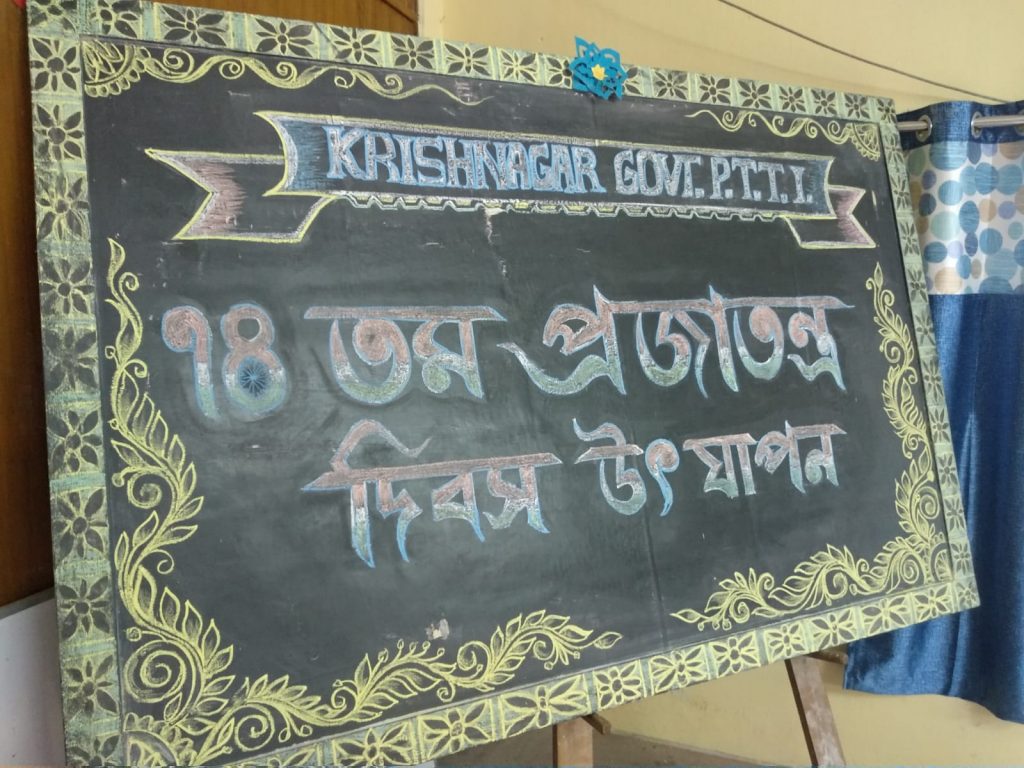 KRISHNAGAR GOVT. P.T.T.I.
৭৪ তম প্রজাতন্ত্র
দিবস উৎ যাপন